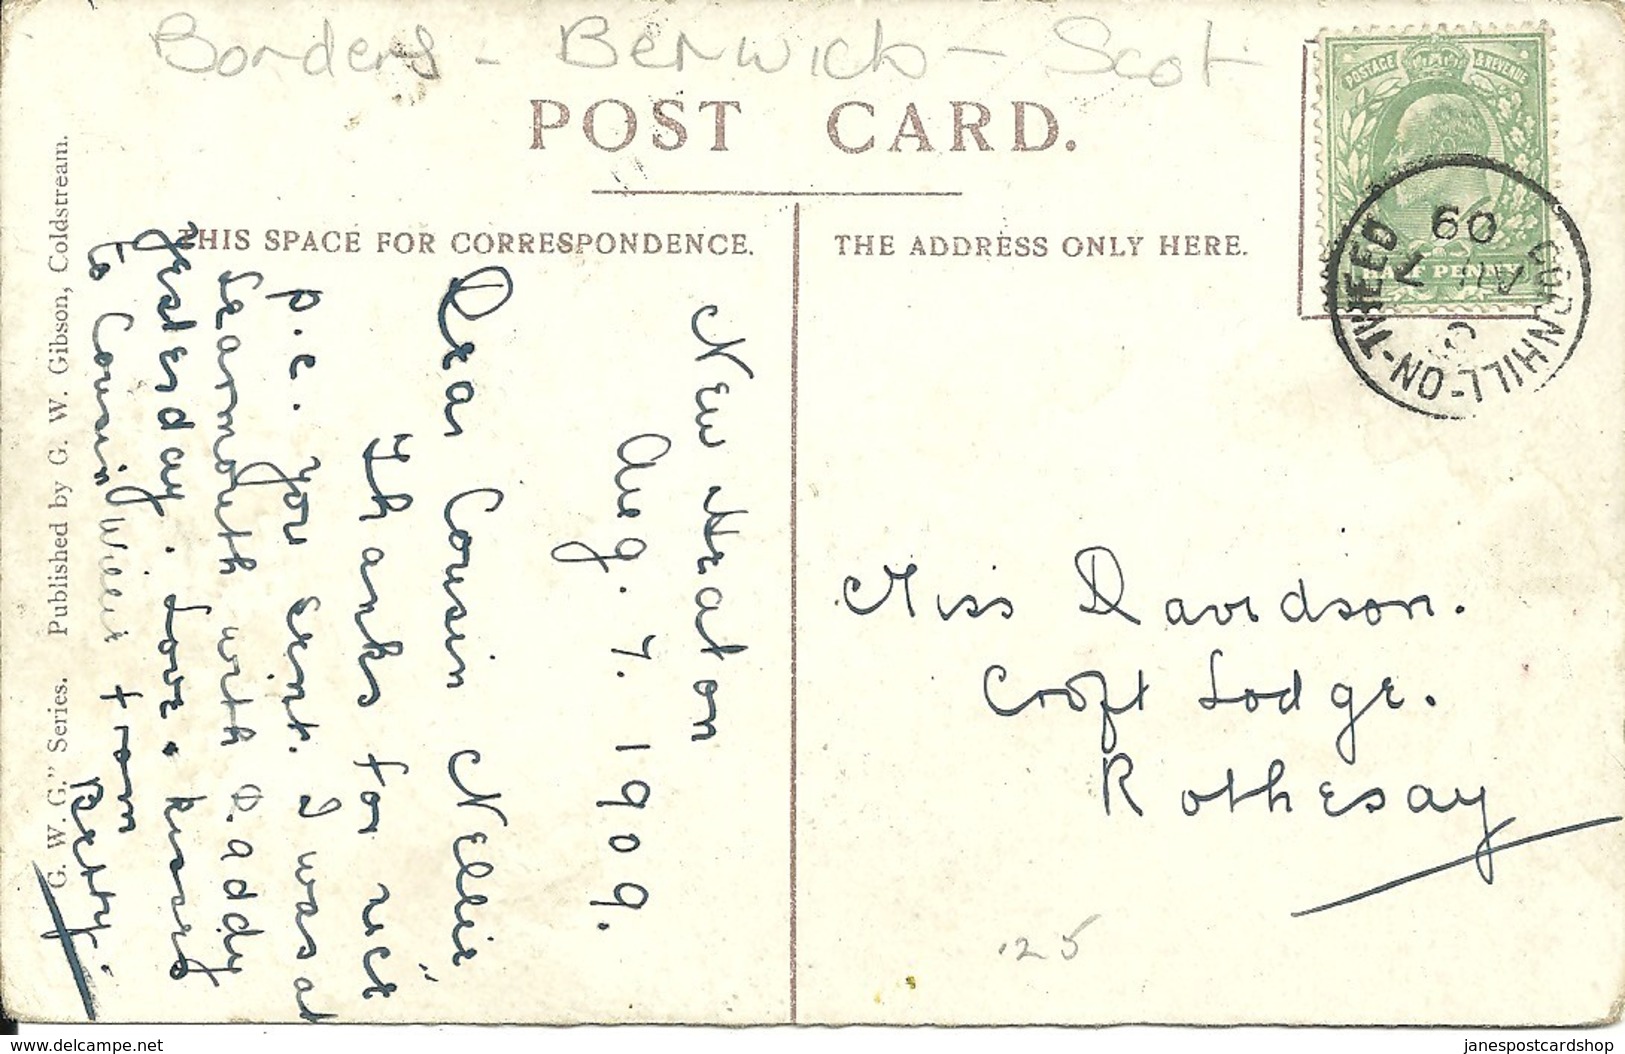 Borders - Berwick - Scot
POST CARD.
THIS SPACE FOR CORRESPONDENCE.
THE ADDRESS ONLY HERE.
POSTAGE & REVENUE
HALF PENNY
CORNHILL-ON-TWEED
AU 7
09
"G. W. G." Series. Published by G. W. Gibson, Coldstream.
New Heaton
Aug. 7. 1909.
Dear Cousin Nellie
Thanks for nice
p.c. you sent. I was at
Learmouth with Daddy
yesterday. Love & kisses
to Cousin Willie from
Betty.
Miss Davidson.
Croft Lodge.
Rothesay
.25
www.delcampe.net
janespostcardshop